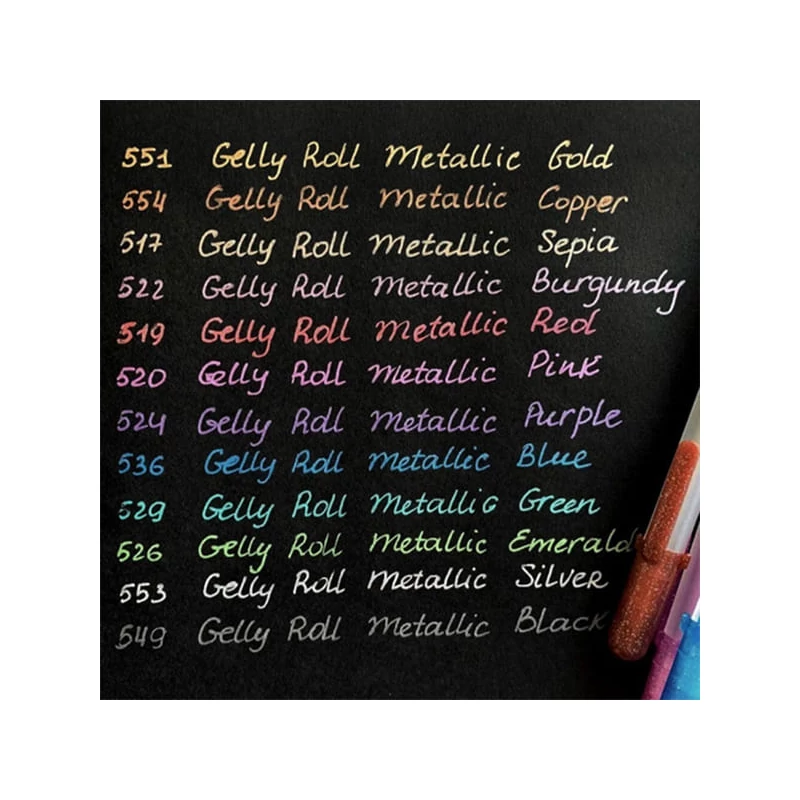 551 Gelly Roll Metallic Gold
554 Gelly Roll Metallic Copper
517 Gelly Roll Metallic Sepia
522 Gelly Roll Metallic Burgundy
519 Gelly Roll Metallic Red
520 Gelly Roll Metallic Pink
524 Gelly Roll Metallic Purple
536 Gelly Roll Metallic Blue
529 Gelly Roll Metallic Green
526 Gelly Roll Metallic Emerald
553 Gelly Roll Metallic Silver
549 Gelly Roll Metallic Black